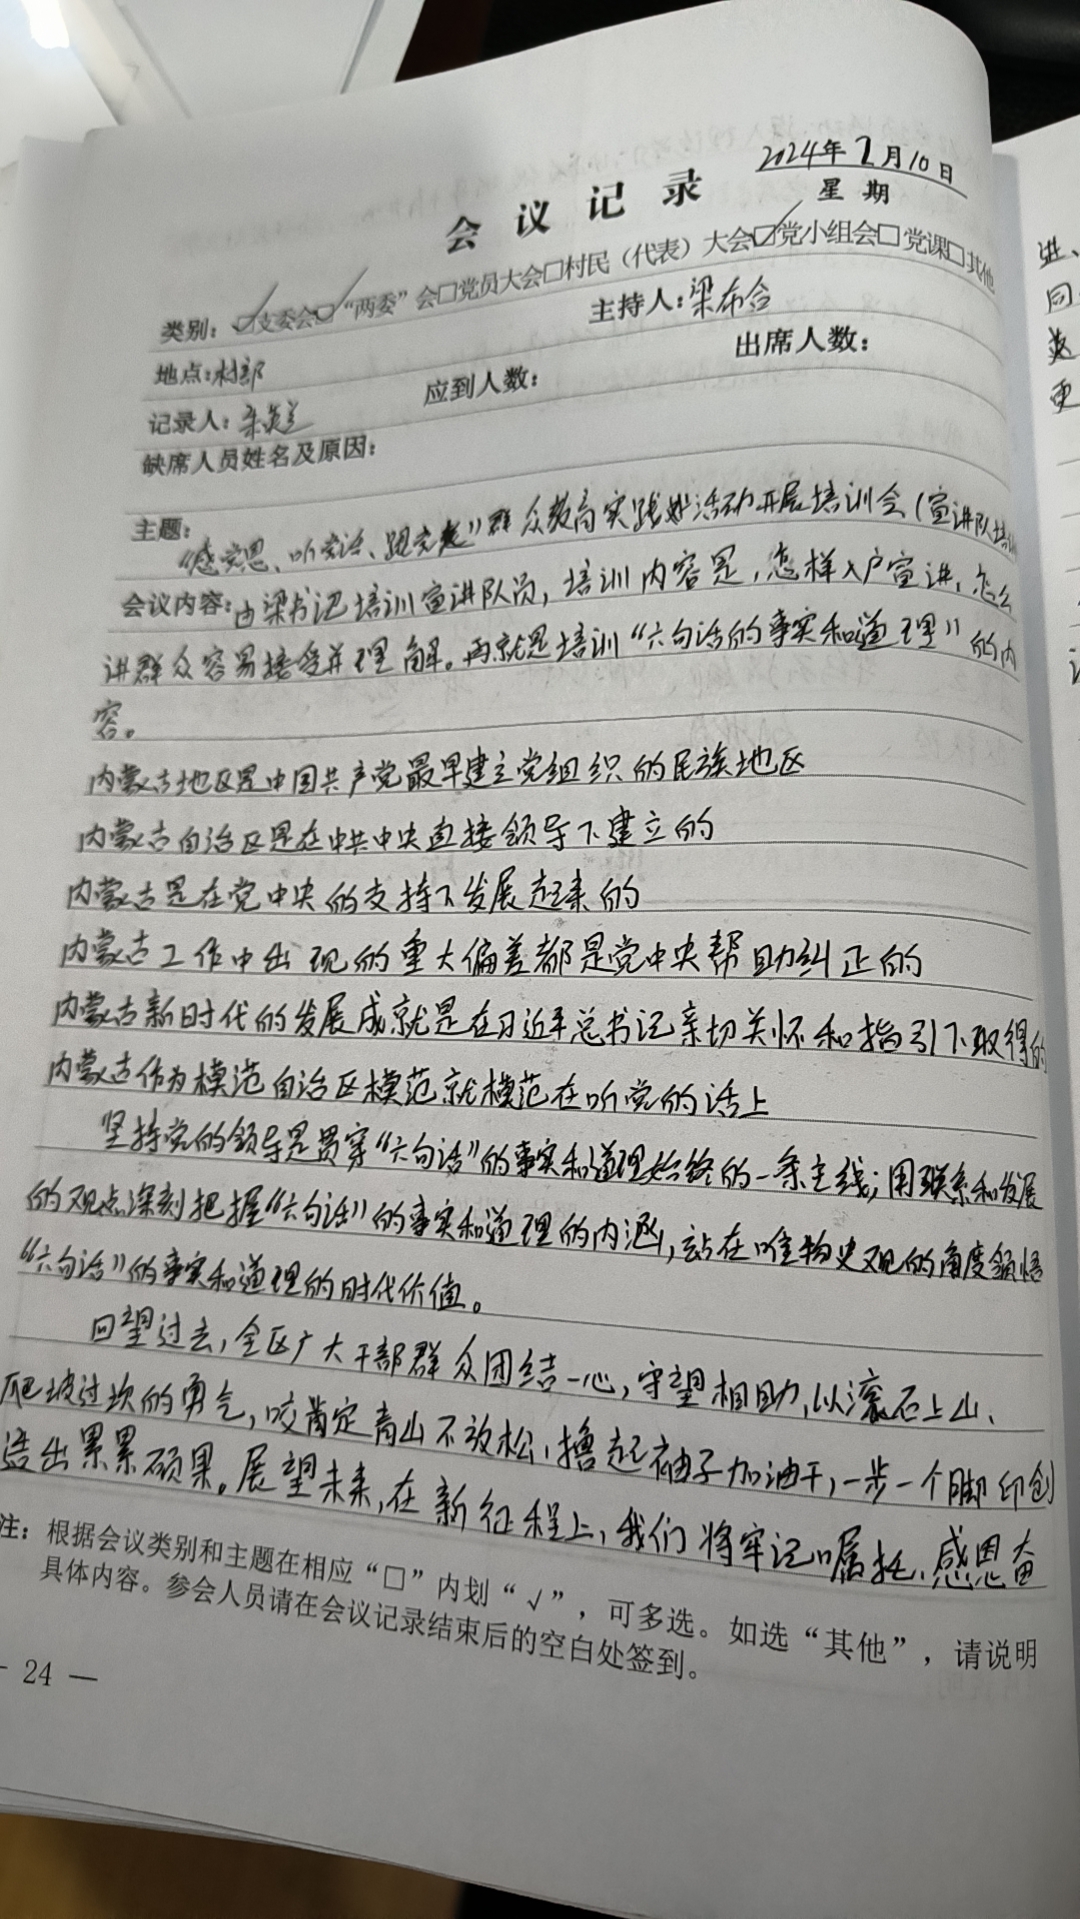 2024年7月10日
会议记录
星期
类别：☑支委会☑“两委”会□党员大会□村民（代表）大会☑党小组会□党课□其他
地点：村部 主持人：梁布合
记录人： 应到人数： 出席人数：
缺席人员姓名及原因：
主题：“感党恩、听党话、跟党走”群众教育实践活动开展培训会（宣讲队培训
会议内容：由梁书记培训宣讲队员，培训内容是，怎样入户宣讲，怎么
讲群众容易接受并理解。再就是培训“六句话的事实和道理”的内
容。
内蒙古地区是中国共产党最早建立党组织的民族地区
内蒙古自治区是在中共中央直接领导下建立的
内蒙古是在党中央的支持下发展起来的
内蒙古工作中出现的重大偏差都是党中央帮助纠正的
内蒙古新时代的发展成就是在习近平总书记亲切关怀和指引下取得的
内蒙古作为模范自治区模范就模范在听党的话上
坚持党的领导是贯穿“六句话”的事实和道理始终的一条主线；用联系和发展
的观点深刻把握“六句话”的事实和道理的内涵，站在唯物史观的角度领悟
“六句话”的事实和道理的时代价值。
回望过去，全区广大干部群众团结一心，守望相助，以滚石上山、
爬坡过坎的勇气，咬定青山不放松，撸起袖子加油干，一步一个脚印创
造出累累硕果。展望未来，在新征程上，我们将牢记嘱托、感恩奋
注：根据会议类别和主题在相应“□”内划“√”，可多选。如选“其他”，请说明
具体内容。参会人员请在会议记录结束后的空白处签到。
24 —
进、
同
更